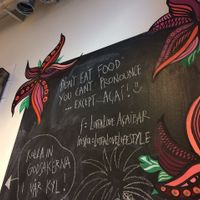 DON'T EAT FOOD
YOU CAN'T PRONOUNCE
... EXCEPT... AÇAÍ! :)
f = LOTTALOVE AÇAÍBAR
insta = LOTTALOVELIFESTYLE
KOLLA IN
GODSAKERNA
I VÅR KYL!